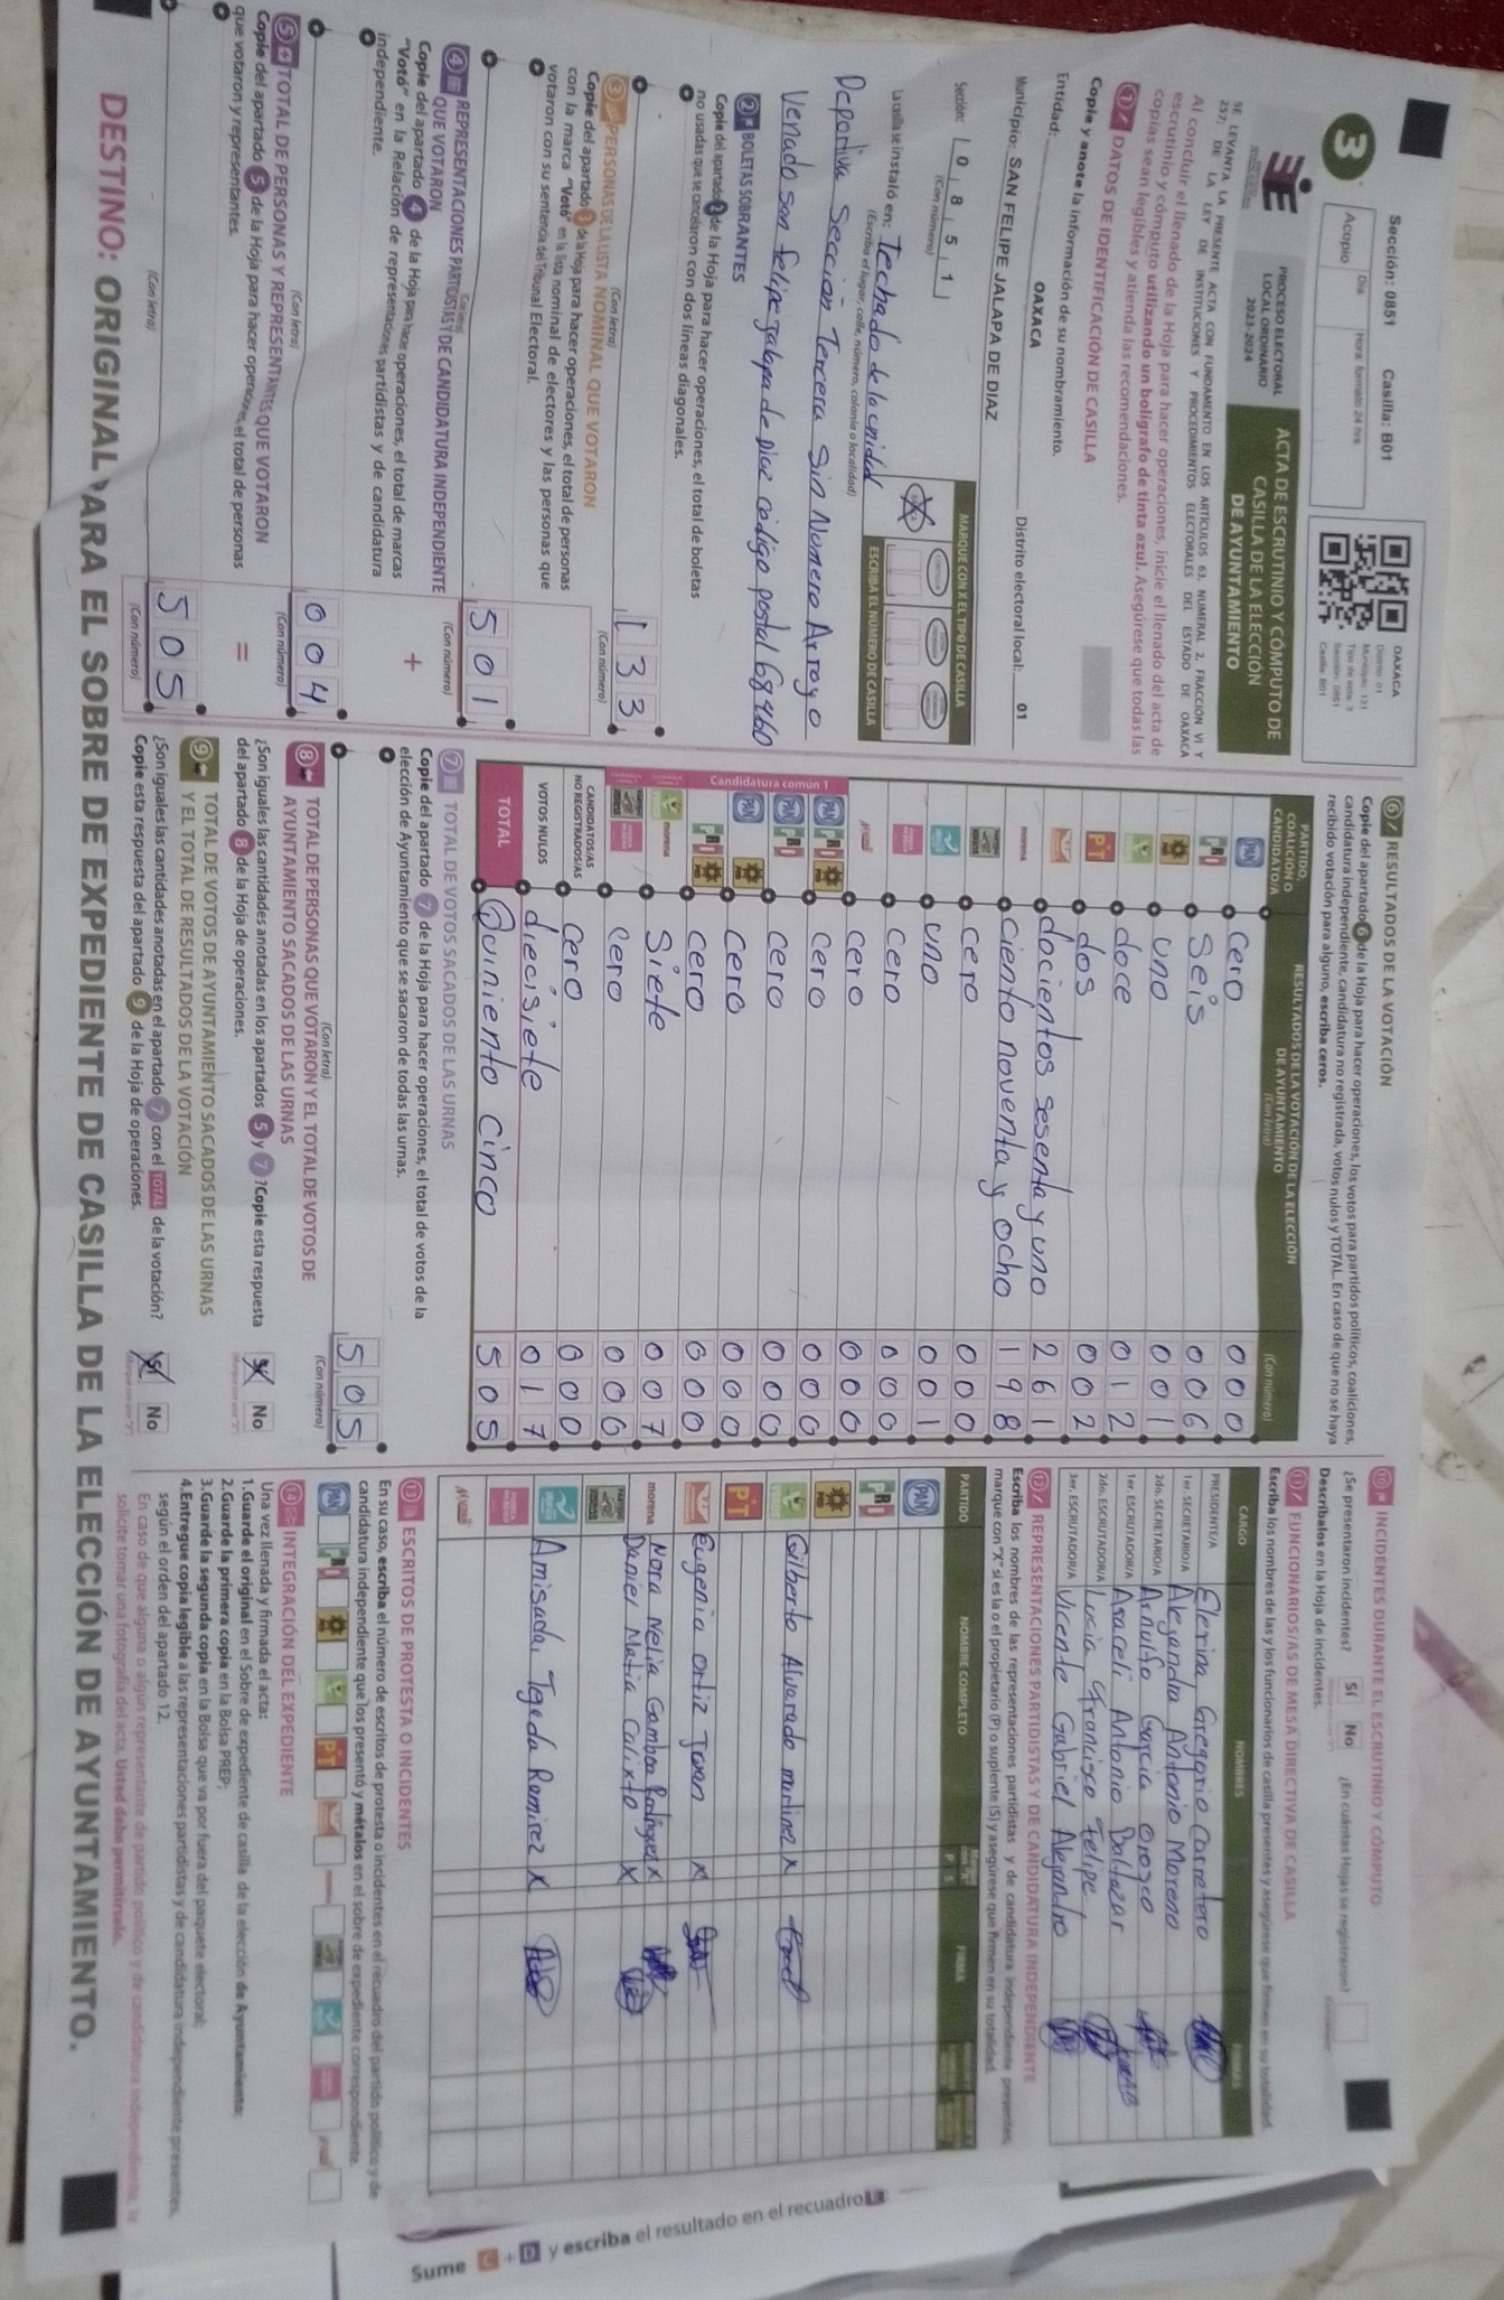 Sección: 0851 Casilla: B01
3
Acopio
Día
Hora: formato 24 hrs.
OAXACA
Distrito: 01
Municipio: 121
Tipo de acta: 3
Sección: 0851
Casilla: B01
PROCESO ELECTORAL
LOCAL ORDINARIO
2023-2024
ACTA DE ESCRUTINIO Y CÓMPUTO DE
CASILLA DE LA ELECCIÓN
DE AYUNTAMIENTO
SE LEVANTA LA PRESENTE ACTA CON FUNDAMENTO EN LOS ARTÍCULOS 63, NUMERAL 2, FRACCIÓN VI Y
237, DE LA LEY DE INSTITUCIONES Y PROCEDIMIENTOS ELECTORALES DEL ESTADO DE OAXACA
Al concluir el llenado de la Hoja para hacer operaciones, inicie el llenado del acta de
escrutinio y cómputo utilizando un bolígrafo de tinta azul. Asegúrese que todas las
copias sean legibles y atienda las recomendaciones.
1 DATOS DE IDENTIFICACIÓN DE CASILLA
Copie y anote la información de su nombramiento.
Entidad: OAXACA
Distrito electoral local: 01
Municipio: SAN FELIPE JALAPA DE DIAZ
Sección: 0 8 5 1
(Con número)
MARQUE CON X EL TIPO DE CASILLA
ESCRIBA EL NÚMERO DE CASILLA
La casilla se instaló en: Techado de la unidad
(Escriba el lugar, calle, número, colonia o localidad)
Deportiva Sección Tercera Sin Numero Arroyo
Venado San felipe Jalapa de Diaz codigo postal 68460
2 BOLETAS SOBRANTES
Copie del apartado 2 de la Hoja para hacer operaciones, el total de boletas
no usadas que se cancelaron con dos líneas diagonales.
(Con letra)
1 3 3
(Con número)
3 PERSONAS DE LA LISTA NOMINAL QUE VOTARON
Copie del apartado 3 de la Hoja para hacer operaciones, el total de personas
con la marca "Votó" en la lista nominal de electores y las personas que
votaron con su sentencia del Tribunal Electoral.
(Con letra)
5 0 1
(Con número)
4 REPRESENTACIONES PARTIDISTAS Y DE CANDIDATURA INDEPENDIENTE
QUE VOTARON
Copie del apartado 4 de la Hoja para hacer operaciones, el total de marcas
"Votó" en la Relación de representaciones partidistas y de candidatura
independiente.
+
(Con letra)
0 0 4
(Con número)
5 TOTAL DE PERSONAS Y REPRESENTANTES QUE VOTARON
Copie del apartado 5 de la Hoja para hacer operaciones, el total de personas
que votaron y representantes.
=
(Con letra)
5 0 5
(Con número)
6 RESULTADOS DE LA VOTACIÓN
Copie del apartado 6 de la Hoja para hacer operaciones, los votos para partidos políticos, coaliciones,
candidatura independiente, candidatura no registrada, votos nulos y TOTAL. En caso de que no se haya
recibido votación para alguno, escriba ceros.
PARTIDO, COALICIÓN O CANDIDATO/A
RESULTADOS DE LA VOTACIÓN DE LA ELECCIÓN
DE AYUNTAMIENTO
(Con letra)
(Con número)
PAN cero 0 0 0
PRI Seis 0 0 6
PRD uno 0 0 1
doce 0 1 2
PT dos 0 0 2
docientos sesenta y uno 2 6 1
morena ciento noventa y ocho 1 9 8
cero 0 0 0
uno 0 0 1
cero 0 0 0
cero 0 0 0
Candidatura común 1
PAN PRI PRD cero 0 0 0
PAN PRI cero 0 0 0
PAN PRD cero 0 0 0
PRI PRD cero 0 0 0
morena Siete 0 0 7
cero 0 0 0
CANDIDATOS/AS
NO REGISTRADOS/AS cero 0 0 0
VOTOS NULOS diecisiete 0 1 7
TOTAL Quiniento cinco 5 0 5
7 TOTAL DE VOTOS SACADOS DE LAS URNAS
Copie del apartado 7 de la Hoja para hacer operaciones, el total de votos de la
elección de Ayuntamiento que se sacaron de todas las urnas.
(Con letra)
5 0 5
(Con número)
8 TOTAL DE PERSONAS QUE VOTARON Y EL TOTAL DE VOTOS DE
AYUNTAMIENTO SACADOS DE LAS URNAS
¿Son iguales las cantidades anotadas en los apartados 5 y 7? Copie esta respuesta
del apartado 8 de la Hoja de operaciones.
Sí No
9 TOTAL DE VOTOS DE AYUNTAMIENTO SACADOS DE LAS URNAS
Y EL TOTAL DE RESULTADOS DE LA VOTACIÓN
¿Son iguales las cantidades anotadas en el apartado 7 con el TOTAL de la votación?
Copie esta respuesta del apartado 9 de la Hoja de operaciones.
Sí No
10 INCIDENTES DURANTE EL ESCRUTINIO Y CÓMPUTO
¿Se presentaron incidentes? Sí No ¿En cuántas Hojas se registraron?
Descríbalos en la Hoja de incidentes.
11 FUNCIONARIOS/AS DE MESA DIRECTIVA DE CASILLA
Escriba los nombres de las y los funcionarios de casilla presentes y asegúrese que firmen en su totalidad.
CARGO NOMBRES FIRMAS
PRESIDENTE/A Elerina Gregorio Carretero
1er. SECRETARIO/A Alejandra Antonio Moreno
2do. SECRETARIO/A Arnulfo Garcia Orozco
1er. ESCRUTADOR/A Araceli Antonio Baltazar
2do. ESCRUTADOR/A Lucia Francisco Felipe
3er. ESCRUTADOR/A Vicente Gabriel Alejandro
12 REPRESENTACIONES PARTIDISTAS Y DE CANDIDATURA INDEPENDIENTE
Escriba los nombres de las representaciones partidistas y de candidatura independiente presentes,
marque con "X" si es la o el propietario (P) o suplente (S) y asegúrese que firmen en su totalidad.
PARTIDO NOMBRE COMPLETO P S FIRMA
PAN
PRI
PRD
Gilberto Alvarado X
PT
Eugenia Ortiz X
morena Nora Nelia Gamboa Rodriguez X
Daniel Matia Calixto X
Amisadai Tejeda Ramirez X
13 ESCRITOS DE PROTESTA O INCIDENTES
En su caso, escriba el número de escritos de protesta o incidentes en el recuadro del partido político y de
candidatura independiente que los presentó y métalos en el sobre de expediente correspondiente.
PAN PRI PRD PT
14 INTEGRACIÓN DEL EXPEDIENTE
Una vez llenada y firmada el acta:
1.Guarde el original en el Sobre de expediente de casilla de la elección de Ayuntamiento;
2.Guarde la primera copia en la Bolsa PREP;
3.Guarde la segunda copia en la Bolsa que va por fuera del paquete electoral;
4.Entregue copia legible a las representaciones partidistas y de candidatura independiente presentes,
según el orden del apartado 12.
En caso de que alguna o algún representante de partido político y de candidatura independiente, le
solicite tomar una fotografía del acta, Usted debe permitírselo.
DESTINO: ORIGINAL PARA EL SOBRE DE EXPEDIENTE DE CASILLA DE LA ELECCIÓN DE AYUNTAMIENTO.
Sume C + D y escriba el resultado en el recuadro